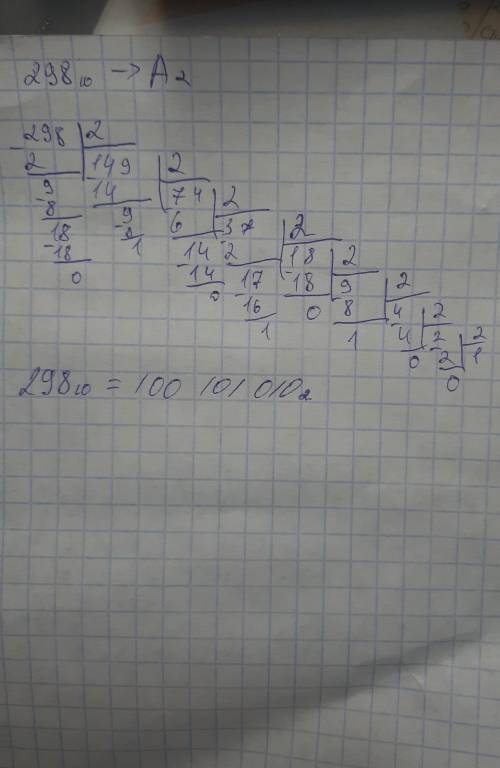 298₁₀ -> A₂
298 | 2
2 149 | 2
9 14 74 | 2
8 9 6 37 | 2
18 8 14 2 18 | 2
18 1 14 17 18 9 | 2
0 0 16 0 8 4 | 2
1 1 4 2 | 2
0 2 1
0
298₁₀ = 100 101 010₂